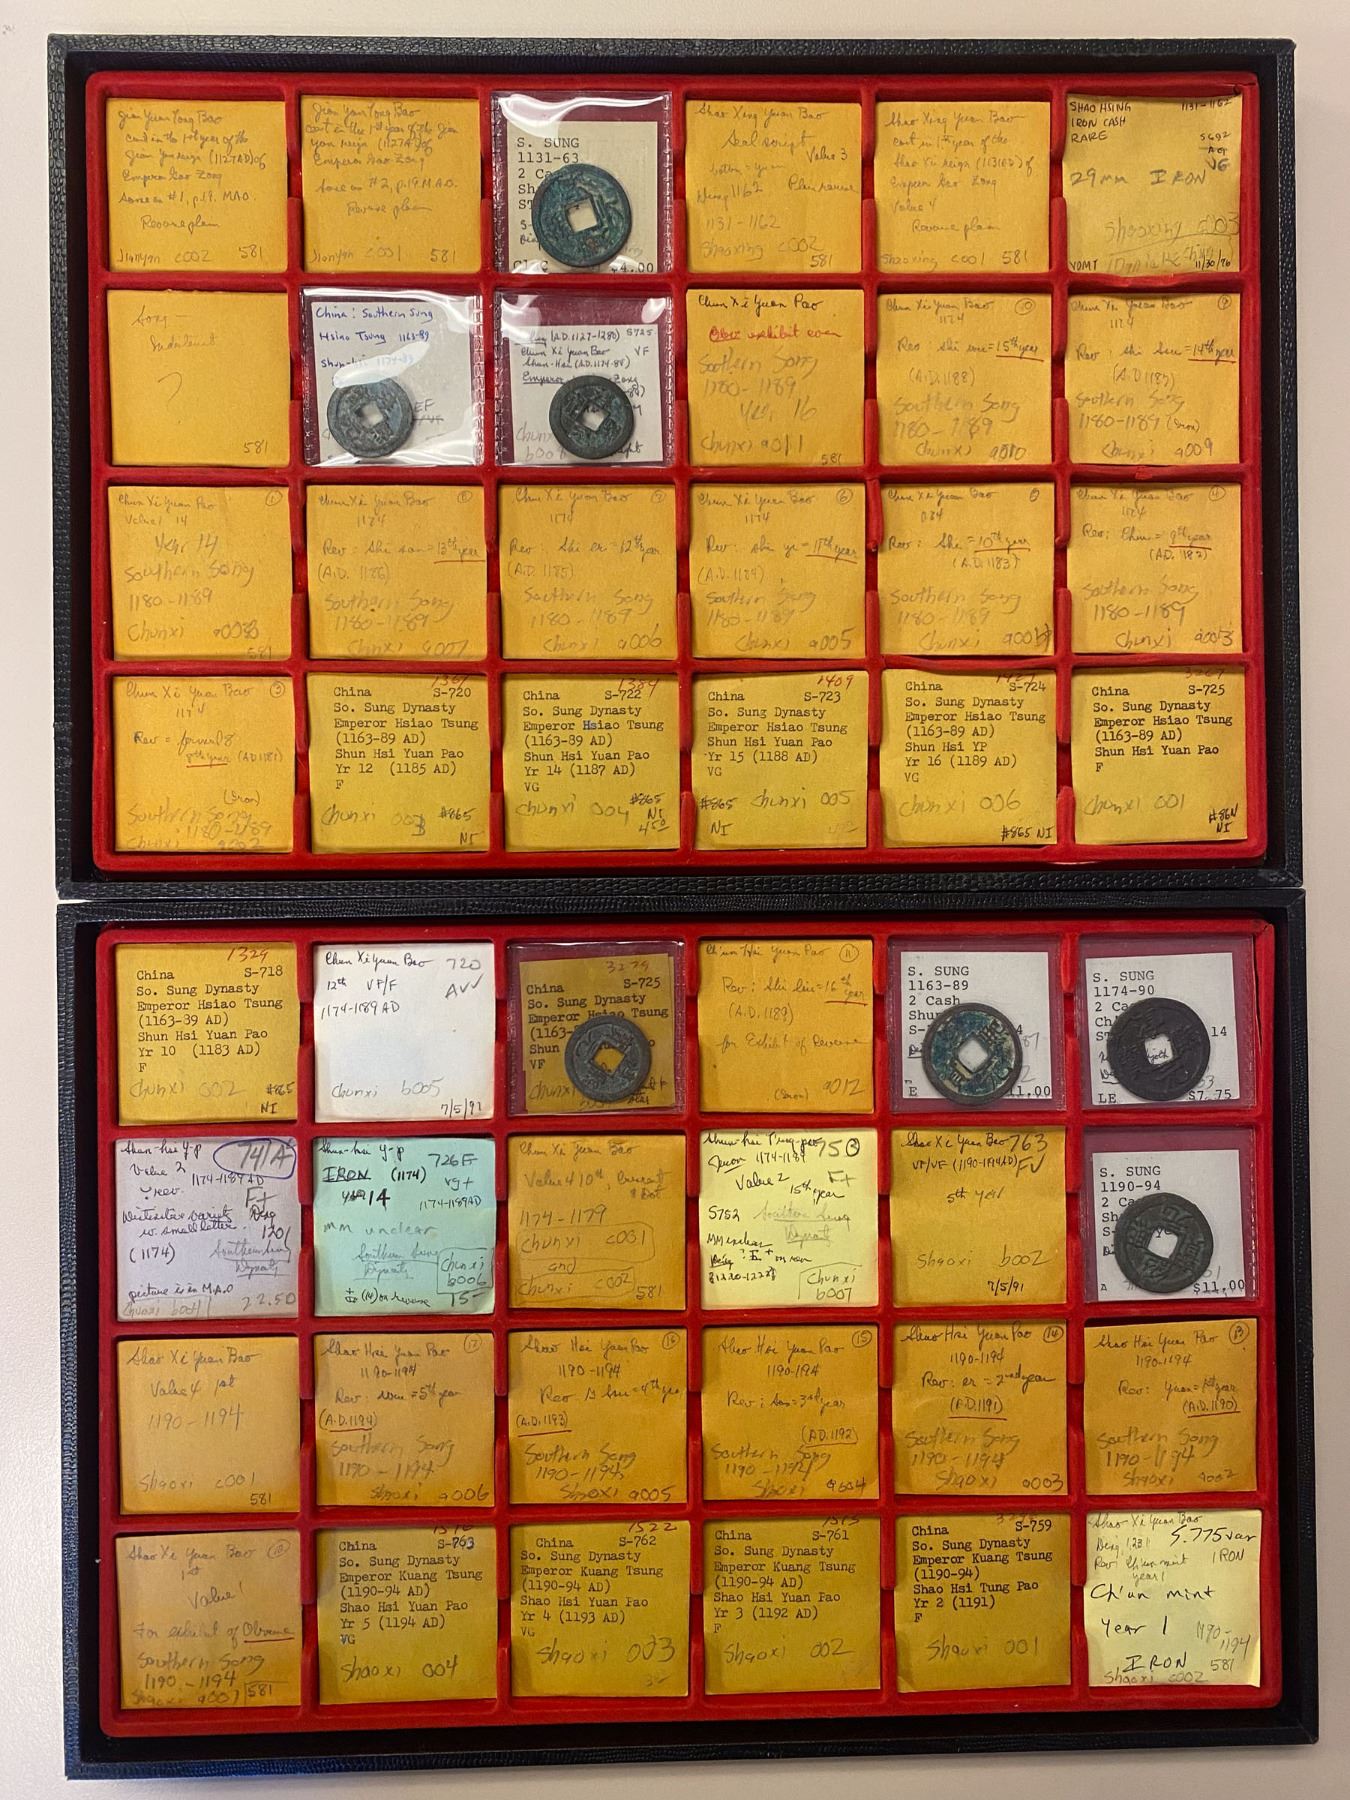 Jian Yuan Tong Bao
cast in the 1st year of the
Jian Yan reign (1127AD) of
Emperor Gao Zong
Same as #1, p.19. MAO.
Reverse plain
Jianyan c002 581
Jian Yan Tong Bao
cast in the 1st year of the Jian
Yan reign (1127AD) of
Emperor Gao Zong
Same as #2, p.19 M.A.O.
Reverse plain
Jianyan c001 581
S. SUNG
1131-63
2 Ca
Sh
ST
S-
$4.00
Shao Xing Yuan Bao
Seal script
Value 3
bottom = yuan
Ding 1162 Plain reverse
1131-1162
Shaoxing c002
581
Shao Xing Yuan Bao
cast in 1st year of the
Shao Xi reign (1131AD) of
Emperor Gao Zong
Value 4
Reverse plain
Shaoxing c001 581
SHAO HSING 1131-1162
IRON CASH
RARE S692
VG
29mm IRON
Shaoxing a003
VDMT 11/30/76
Song -
Indistinct
?
581
China: Southern Sung
Hsiao Tsung 1163-89
EF
(A.D. 1127-1280) S725
Chun Xi Yuan Bao VF
Shun-Hsi (A.D. 1174-89)
Emperor
Chunxi
Chun Xi Yuan Pao
Obv. exhibit coin
Southern Song
1180-1189
Year 16
Chunxi a011
581
Chun Xi Yuan Bao 10
1174
Rev: shi wu = 15th year
(A.D. 1188)
Southern Song
1180-1189
Chunxi a010
Chun Xi Yuan Bao 9
1174
Rev: shi su = 14th year
(A.D 1187)
Southern Song
1180-1189 (Iron)
Chunxi a009
Chun Xi Yuan Pao 1
Value 1 14
Year 14
Southern Song
1180-1189
Chunxi a008
581
Chun Xi Yuan Bao 8
1174
Rev: shi san = 13th year
(A.D. 1186)
Southern Song
1180-1189
Chunxi a007
Chun Xi Yuan Bao 7
1174
Rev: shi er = 12th year
(A.D. 1185)
Southern Song
1180-1189
Chunxi a006
Chun Xi Yuan Bao 6
1174
Rev: shi yi = 11th year
(A.D. 1184)
Southern Song
1180-1189
Chunxi a005
Chun Xi Yuan Bao
Rev: Shi = 10th year
(A.D. 1183)
Southern Song
1180-1189
Chunxi a004
Chun Xi Yuan Bao 4
1174
Rev: = 9th year
(A.D. 1182)
Southern Song
1180-1189
Chunxi a003
Chun Xi Yuan Bao 3
1174
8th year (AD 1181)
(Iron)
Southern Song
1180-1189
Chunxi a002
1367
China S-720
So. Sung Dynasty
Emperor Hsiao Tsung
(1163-89 AD)
Shun Hsi Yuan Pao
Yr 12 (1185 AD)
F
Chunxi 003 #865
NI
1384
China S-722
So. Sung Dynasty
Emperor Hsiao Tsung
(1163-89 AD)
Shun Hsi Yuan Pao
Yr 14 (1187 AD)
VG
Chunxi 004 #865
NI
4.50
1409
China S-723
So. Sung Dynasty
Emperor Hsiao Tsung
(1163-89 AD)
Shun Hsi Yuan Pao
Yr 15 (1188 AD)
VG
#865 Chunxi 005
NI
China S-724
So. Sung Dynasty
Emperor Hsiao Tsung
(1163-89 AD)
Shun Hsi YP
Yr 16 (1189 AD)
VG
Chunxi 006
#865 NI
China S-725
So. Sung Dynasty
Emperor Hsiao Tsung
(1163-89 AD)
Shun Hsi Yuan Pao
F
Chunxi 001
NI
1329
China S-718
So. Sung Dynasty
Emperor Hsiao Tsung
(1163-89 AD)
Shun Hsi Yuan Pao
Yr 10 (1183 AD)
F
Chunxi 002 #865
NI
Chun Xi Yuan Bao 720
12th VF/F
1174-1189 AD
Chunxi b005
7/5/91
3279
China S-725
So. Sung Dynasty
Emperor Hsiao Tsung
(1163-
Shun
VF
Chunxi
Ch'un Hsi Yuan Pao 11
Rev: Shi liu = 16th year
(A.D. 1189)
for Exhibit of Reverse
(Iron) a012
S. SUNG
1163-89
2 Cash
Shun
S-
E 11.00
S. SUNG
1174-90
2 Ca
Ch
ST 14
LE $7.75
Shun-hsi Y-p 741A
Value 2 1174-1189AD
? rev. F+
Distinctive variety Ding
w. small letter. 1201
(1174) Southern Sung
Dynasty
picture is in M.A.O
Chunxi b004 22.50
Shun-hsi y-p 726F
IRON (1174) vg+
14 1174-1189AD
mm unclear
Southern Sung
Dynasty Chunxi
b006
(14) on reverse 15-
Chun Xi Yuan Bao
Value 4 10th, Crescent
& Dot
1174-1179
Chunxi c001
and
Chunxi c002 581
Shun-hsi
Iron 1174-1189
Value 2 F+
15th year
S752 Southern Sung
Dynasty
MM unclear
on rev
Chunxi
b007
Shao Xi Yuan Bao 763
VF/VF (1190-1194AD)
5th year
Shaoxi b002
7/5/91
S. SUNG
1190-94
2 Ca
Sh
S-
A $11.00
Shao Xi Yuan Bao
Value 4 1st
1190-1194
Shaoxi c001
581
Shao Hsi Yuan Pao 17
1190-1194
Rev: wu = 5th year
(A.D. 1194)
Southern Song
1190-1194
Shaoxi a006
Shao Hsi Yuan Pao 16
1190-1194
Rev su = 4th year
(A.D. 1193)
Southern Song
1190-1194
Shaoxi a005
Shao Hsi Yuan Pao 15
1190-1194
Rev: san = 3rd year
(AD. 1192)
Southern Song
1190-1194
Shaoxi a004
Shao Hsi Yuan Pao 14
1190-1194
Rev: er = 2nd year
(A.D. 1191)
Southern Song
1190-1194
Shaoxi a003
Shao Hsi Yuan Pao 13
1190-1194
Rev: Yuan = 1st year
(A.D. 1190)
Southern Song
1190-1194
Shaoxi a002
Shao Xi Yuan Bao 18
1st
Value 1
For exhibit of Obverse
Southern Song
1190-1194
Shaoxi a007 581
China S-763
So. Sung Dynasty
Emperor Kuang Tsung
(1190-94 AD)
Shao Hsi Yuan Pao
Yr 5 (1194 AD)
VG
Shaoxi 004
1522
China S-762
So. Sung Dynasty
Emperor Kuang Tsung
(1190-94 AD)
Shao Hsi Yuan Pao
Yr 4 (1193 AD)
VG
Shaoxi 003
China S-761
So. Sung Dynasty
Emperor Kuang Tsung
(1190-94 AD)
Shao Hsi Yuan Pao
Yr 3 (1192 AD)
F
Shaoxi 002
China S-759
So. Sung Dynasty
Emperor Kuang Tsung
(1190-94)
Shao Hsi Tung Pao
Yr 2 (1191)
F
Shaoxi 001
Shao Xi Yuan Bao
Ding 1231 S.775var
Rev: Ch'un mint IRON
year 1
Ch'un mint
Year 1 1190-
1194
IRON 581
Shaoxi c002